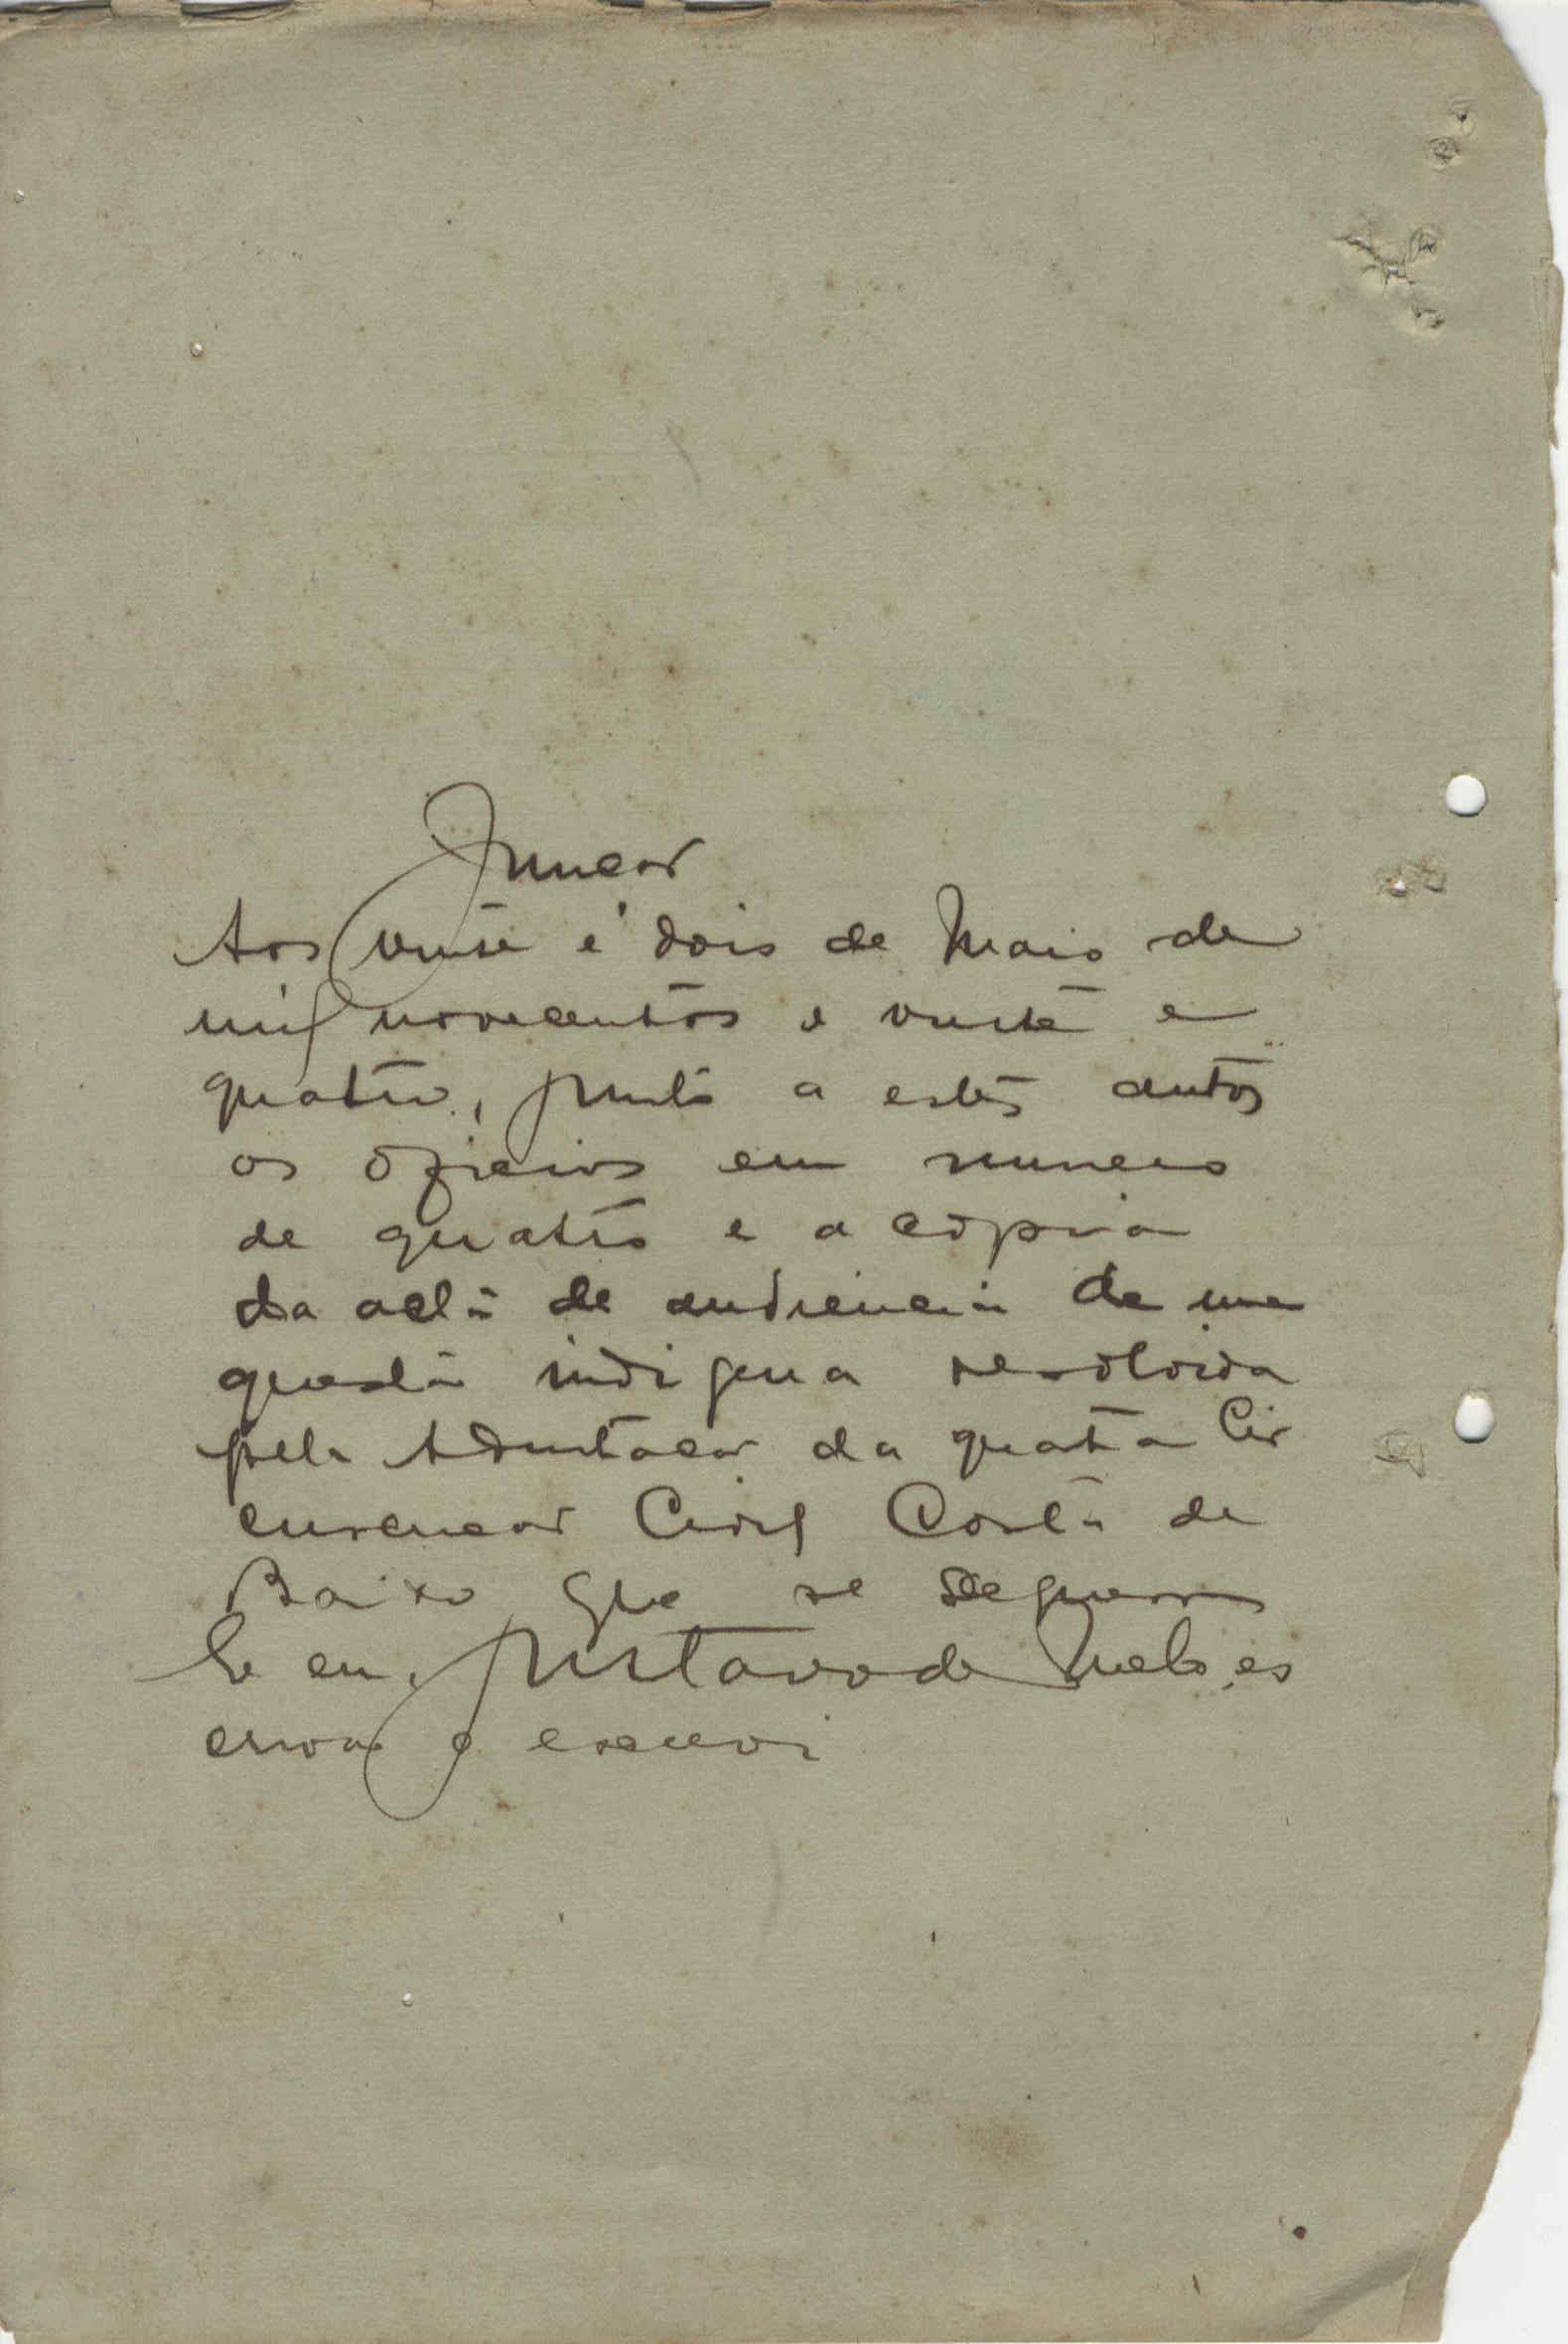 Juncão
Aos vinte e dois de Maio de
mil novecentos e vinte e
quatro, junto a estes autos
os oficios em numero
de quatro e a cópia
da acta de audiencia de uma
questão indigena resolvida
pela da quarta Cir
cunscricão Civil Costa de
Baixo que se seguem
E eu, Gustavo de Melo, es
crivão o escrevi